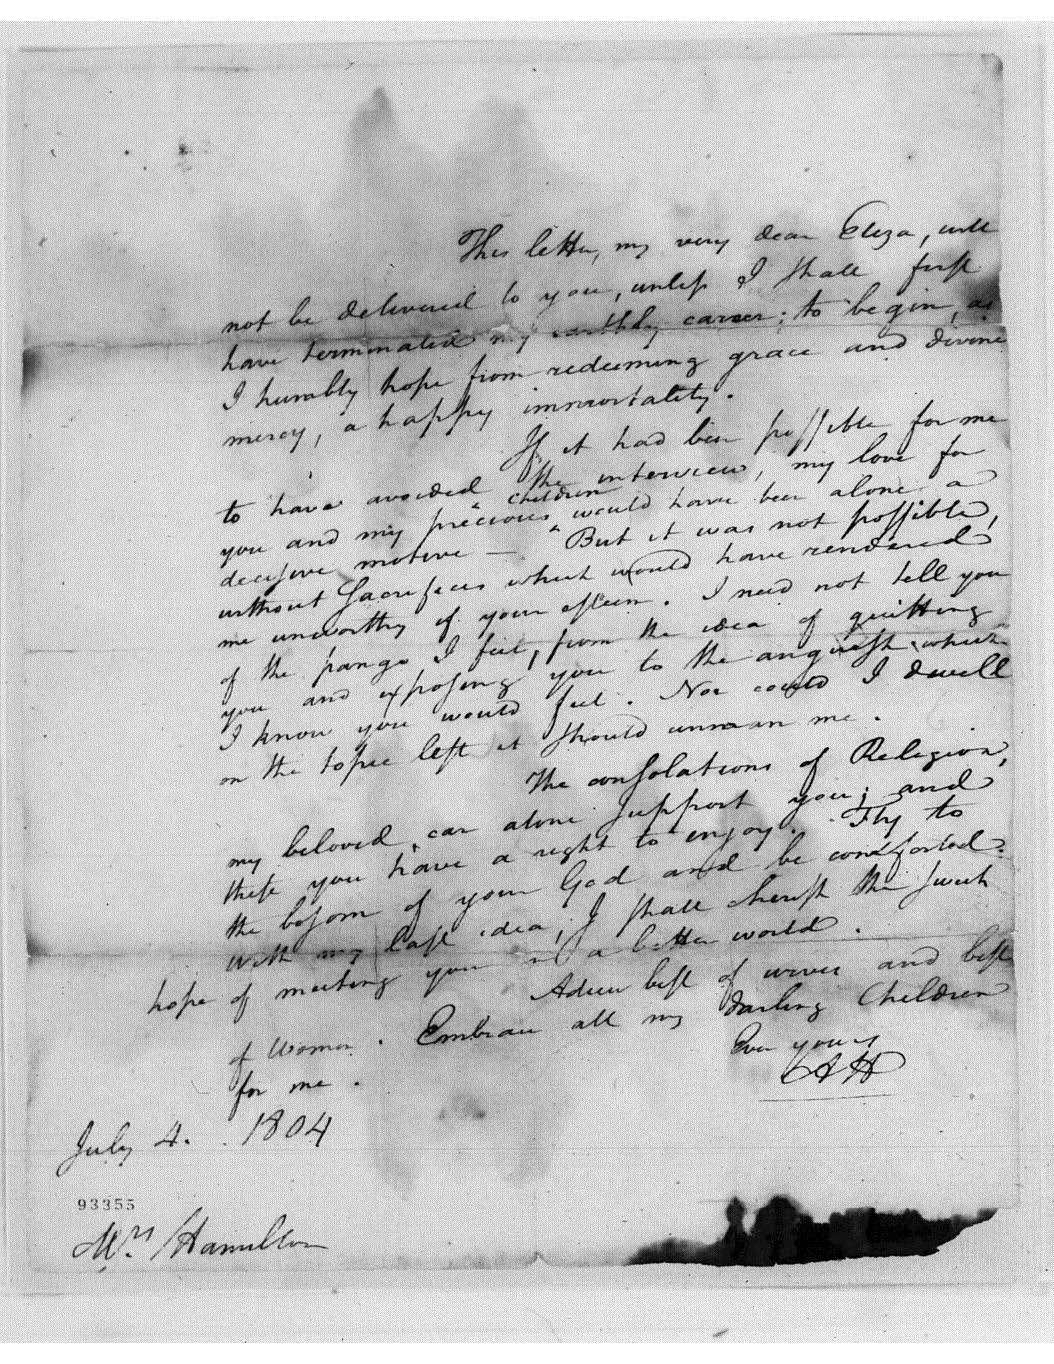 This letter, my very dear Eliza, will
not be delivered to you, unless I shall first
have terminated my earthly career; to begin, as
I humbly hope from redeeming grace and divine
mercy, a happy immortality.
If it had been possible for me
to have avoided the interview, my love for
you and my precious children would have been alone a
decisive motive — But it was not possible,
without sacrifices which would have rendered
me unworthy of your esteem. I need not tell you
of the pangs I feel, from the idea of quitting
you and exposing you to the anguish which
I know you would feel. Nor could I dwell
on the topic lest it should unman me.
The consolations of Religion,
my beloved, can alone support you; and
these you have a right to enjoy. Fly to
the bosom of your God and be comforted.
With my last idea, I shall cherish the sweet
hope of meeting you in a better world.
Adieu best of wives and best
of Women. Embrace all my darling Children
for me.
Ever yours
AH
July 4. 1804
93355
Mrs Hamilton